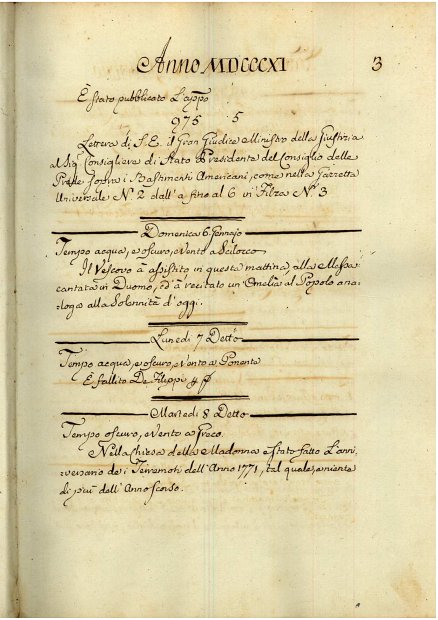 Anno MDCCCXI 3
È stato pubblicato L'app̃o
975 5
Lettera di S. E. il Gran Giudice Ministro della Giustizia
al Sig. Consigliere di Stato Presidente del Consiglio delle
Prede sopra i Bastimenti Americani, come nella Gazzetta
Universale N. 2 dall' a fino al 6 in Filza N. 3
Domenica 6 Gennajo
Tempo acqua, e oscuro, e Vento a Scilocco
Il Vescovo à assistito in questa mattina, alla Messa
cantata in Duomo, ed à recitato un' Omelia al Popolo ana-
loga alla Solennità d'oggi.
Lunedi 7 Detto
Tempo acqua, e oscuro, e Vento a Ponente
È fallito De Filippi
Martedi 8 Detto
Tempo oscuro, e Vento a Greco.
Nella chiesa della Madonna è stato fatto L'anni-
versario de i Terremoti dell'Anno 1771, tal quale, e niente
di più dell'Anno scorso.